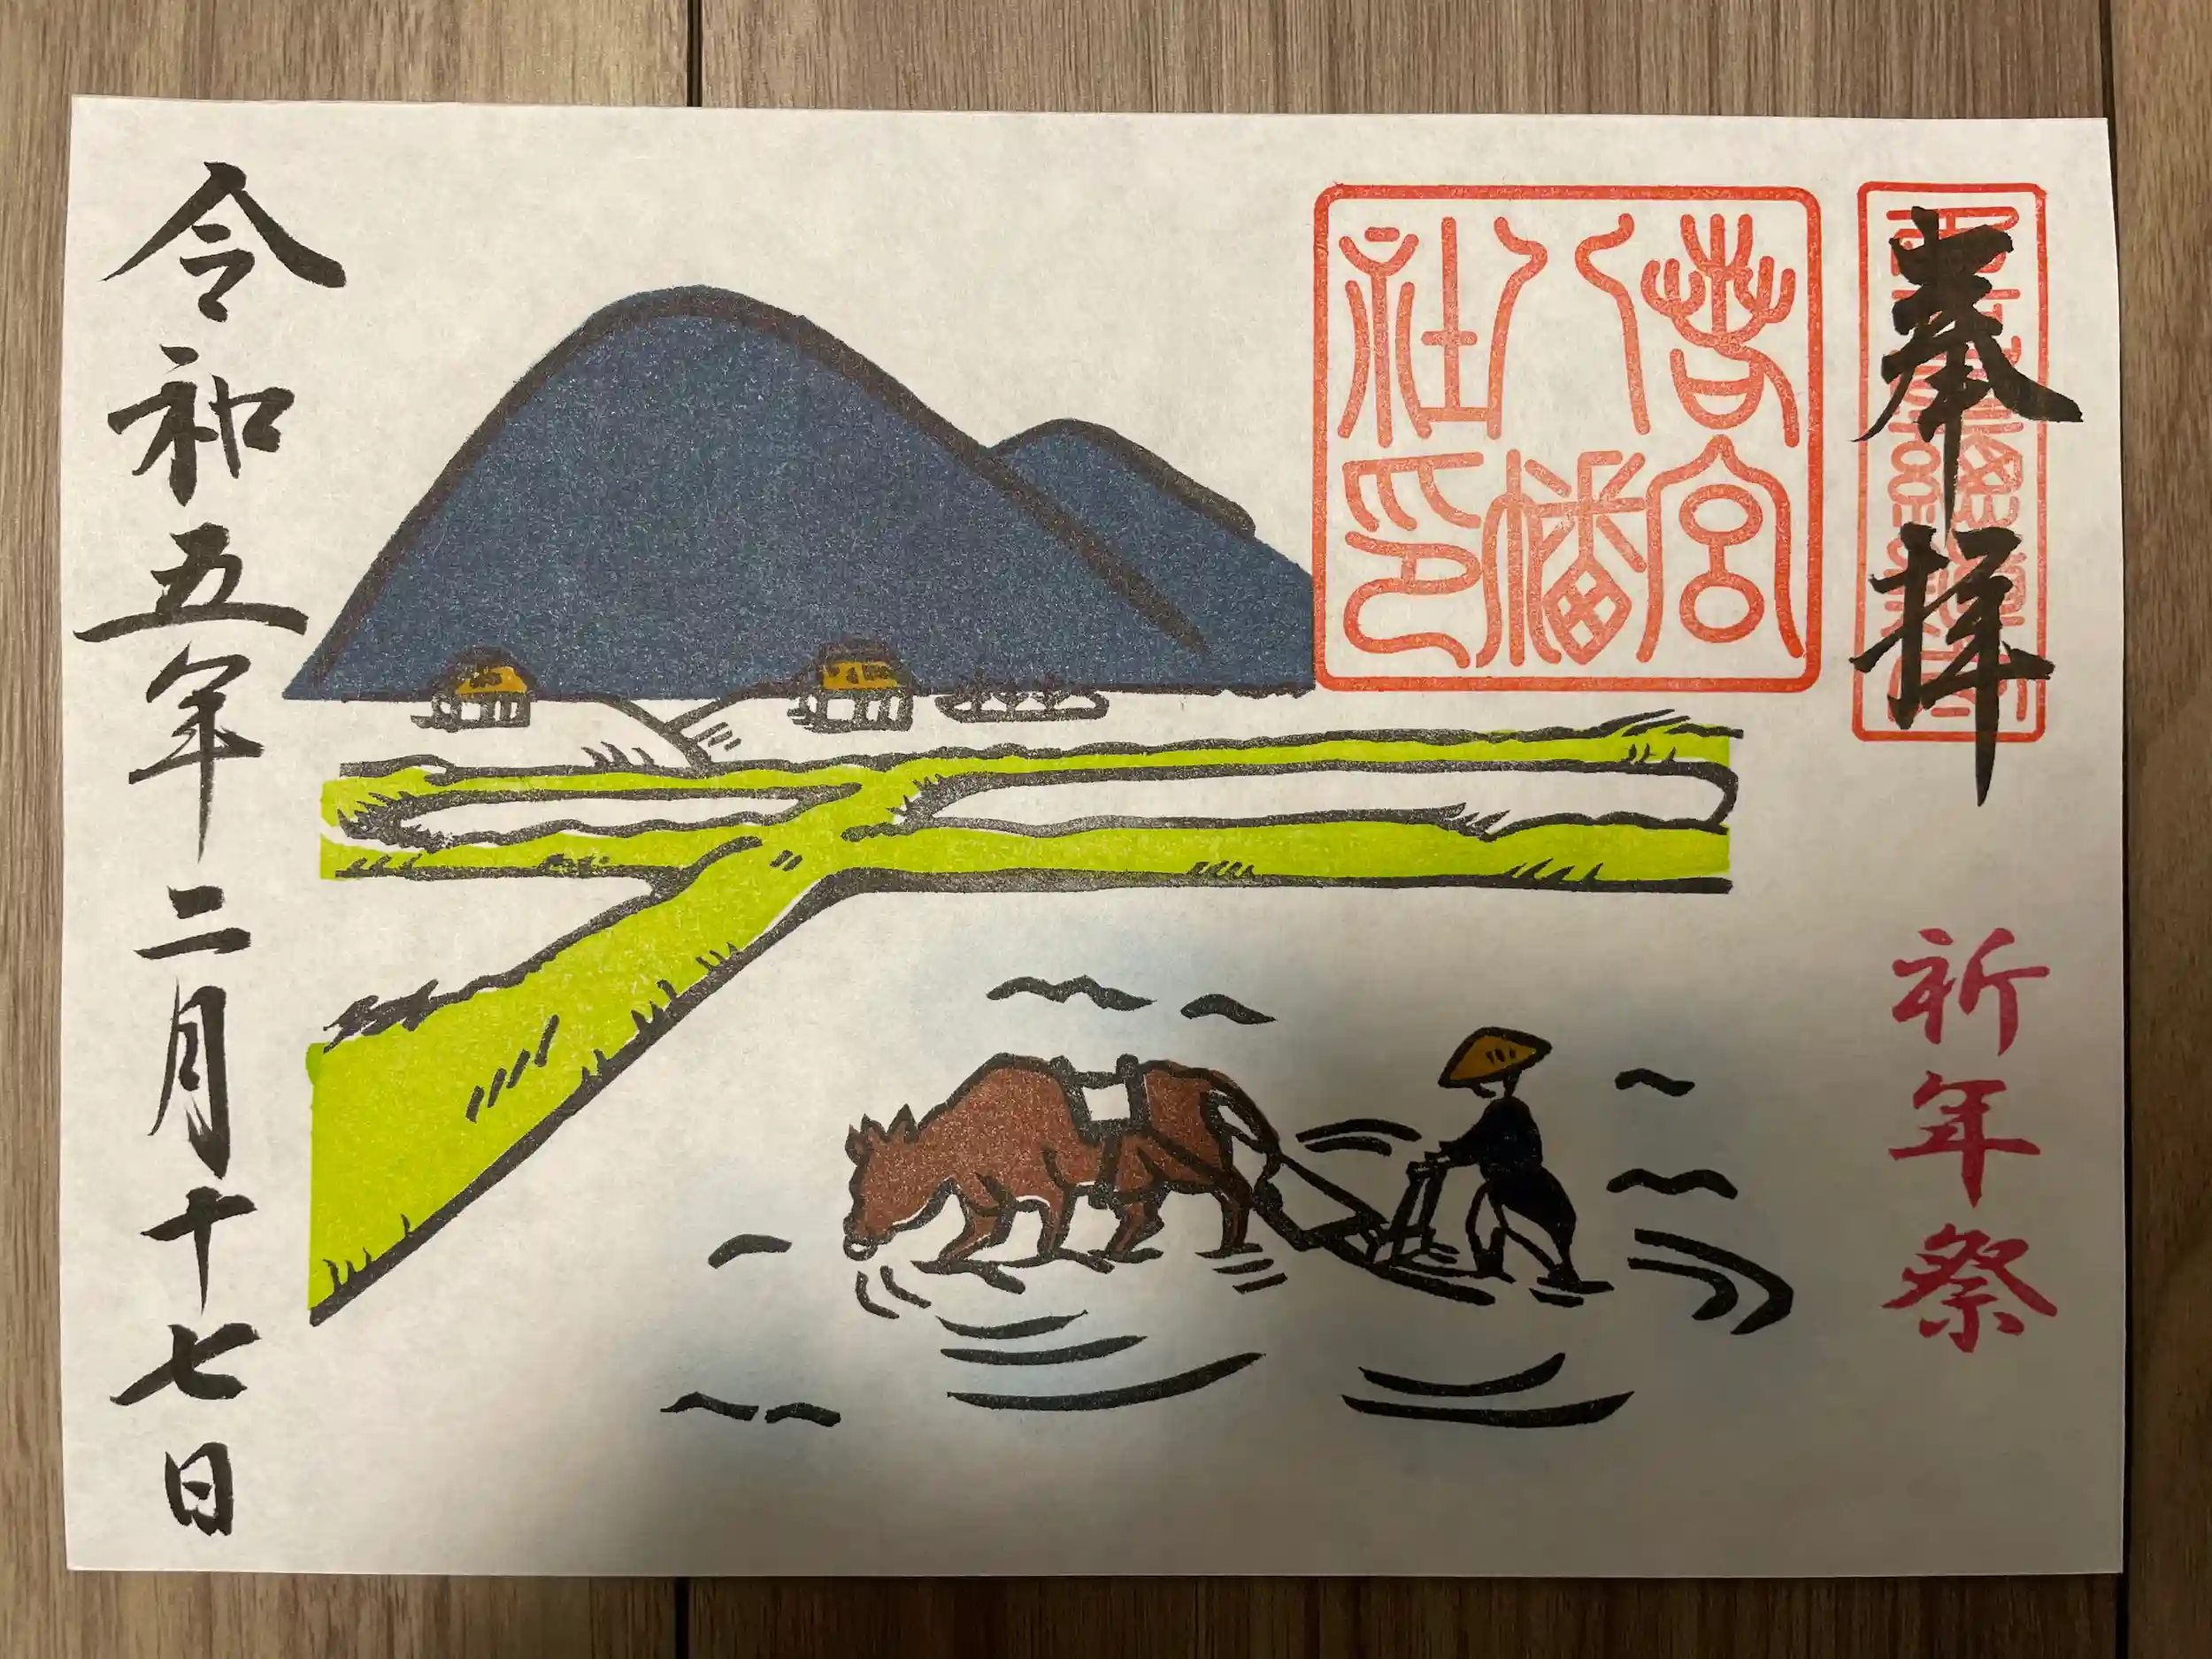 奉拝
祈年祭
若宮
八幡
社印
令和五年二月十七日